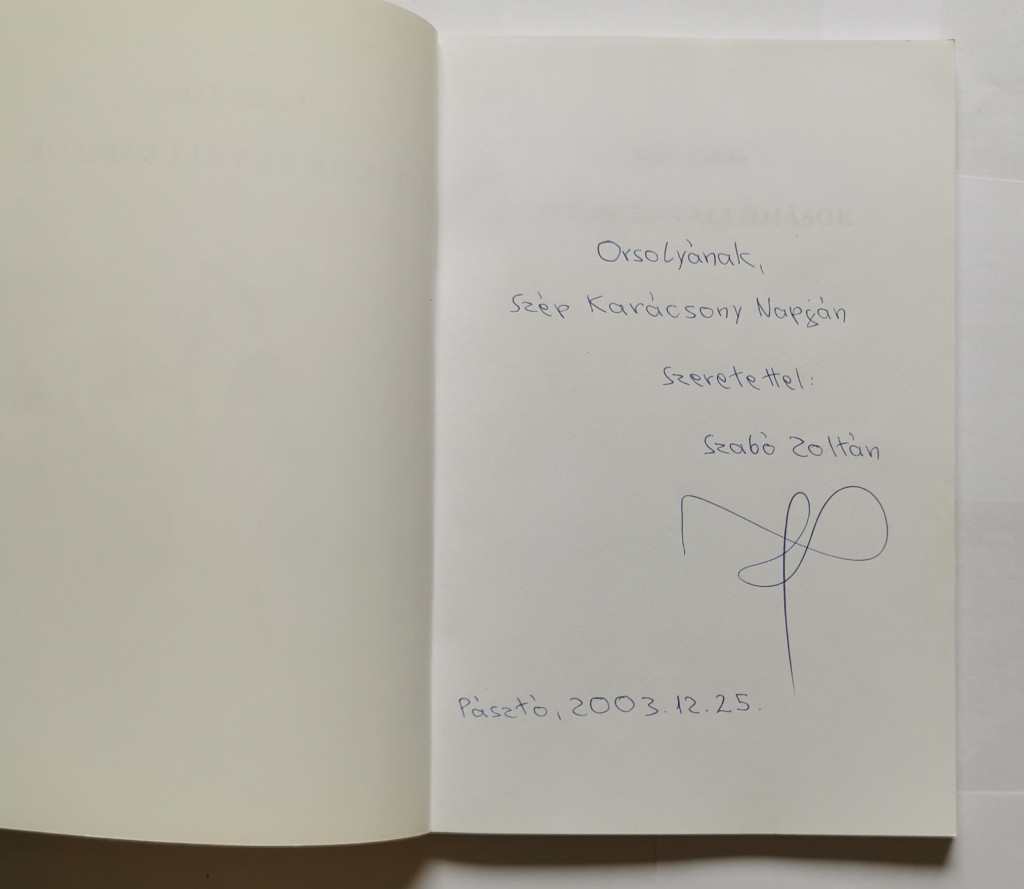 Orsolyának,
Szép Karácsony Napján
Szeretettel:
Szabó Zoltán
Pásztó, 2003.12.25.